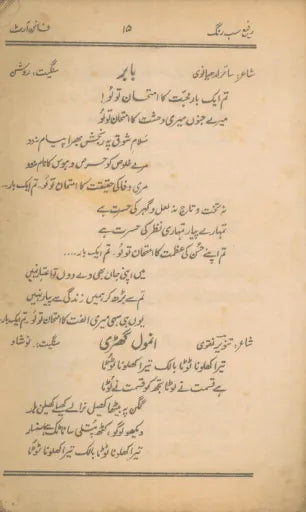 رفیع سب رنگ ۱۵ فائن آرٹ
شاعر: ساحر لدھیانوی بابر سنگیت: روشن
تم ایک بار محبت کا امتحان تو لو!
میرے جنوں میری وحشت کا امتحان تو لو
سلامِ شوق پہ رنجش بھرا پیام نہ دو
مرے خلوص کو حرص و ہوس کا نام نہ دو
مری وفا کی حقیقت کا امتحان تو لو۔ تم ایک بار...
نہ تخت و تاج نہ لعل و گہر کی حسرت ہے
تمہارے پیار تمہاری نظر کی حسرت ہے
تم اپنے حُسن کی عظمت کا امتحان تو لو۔ تم ایک بار....
میں اپنی جان بھی دے دوں تو اعتبار نہیں
تم سے بڑھ کر ہمیں زندگی سے پیار نہیں
یوں ہی سہی میری الفت کا امتحان تو لو۔ تم ایک بار..
شاعر: تنویر نقوی انمول گھڑی سنگیت: نوشاد
تیرا کھلونا ٹوٹا بالک تیرا کھلونا ٹوٹا
ہے قسمت نے لوٹا تجھ کو قسمت نے لوٹا
گگن پہ بیٹھا کھیل نرالے کھیلے کھیلن ہار
دیکھو لوگو، کٹھ پتلی سا ناچ ہے سنسار
تیرا کھلونا ٹوٹا بالک تیرا کھلونا ٹوٹا